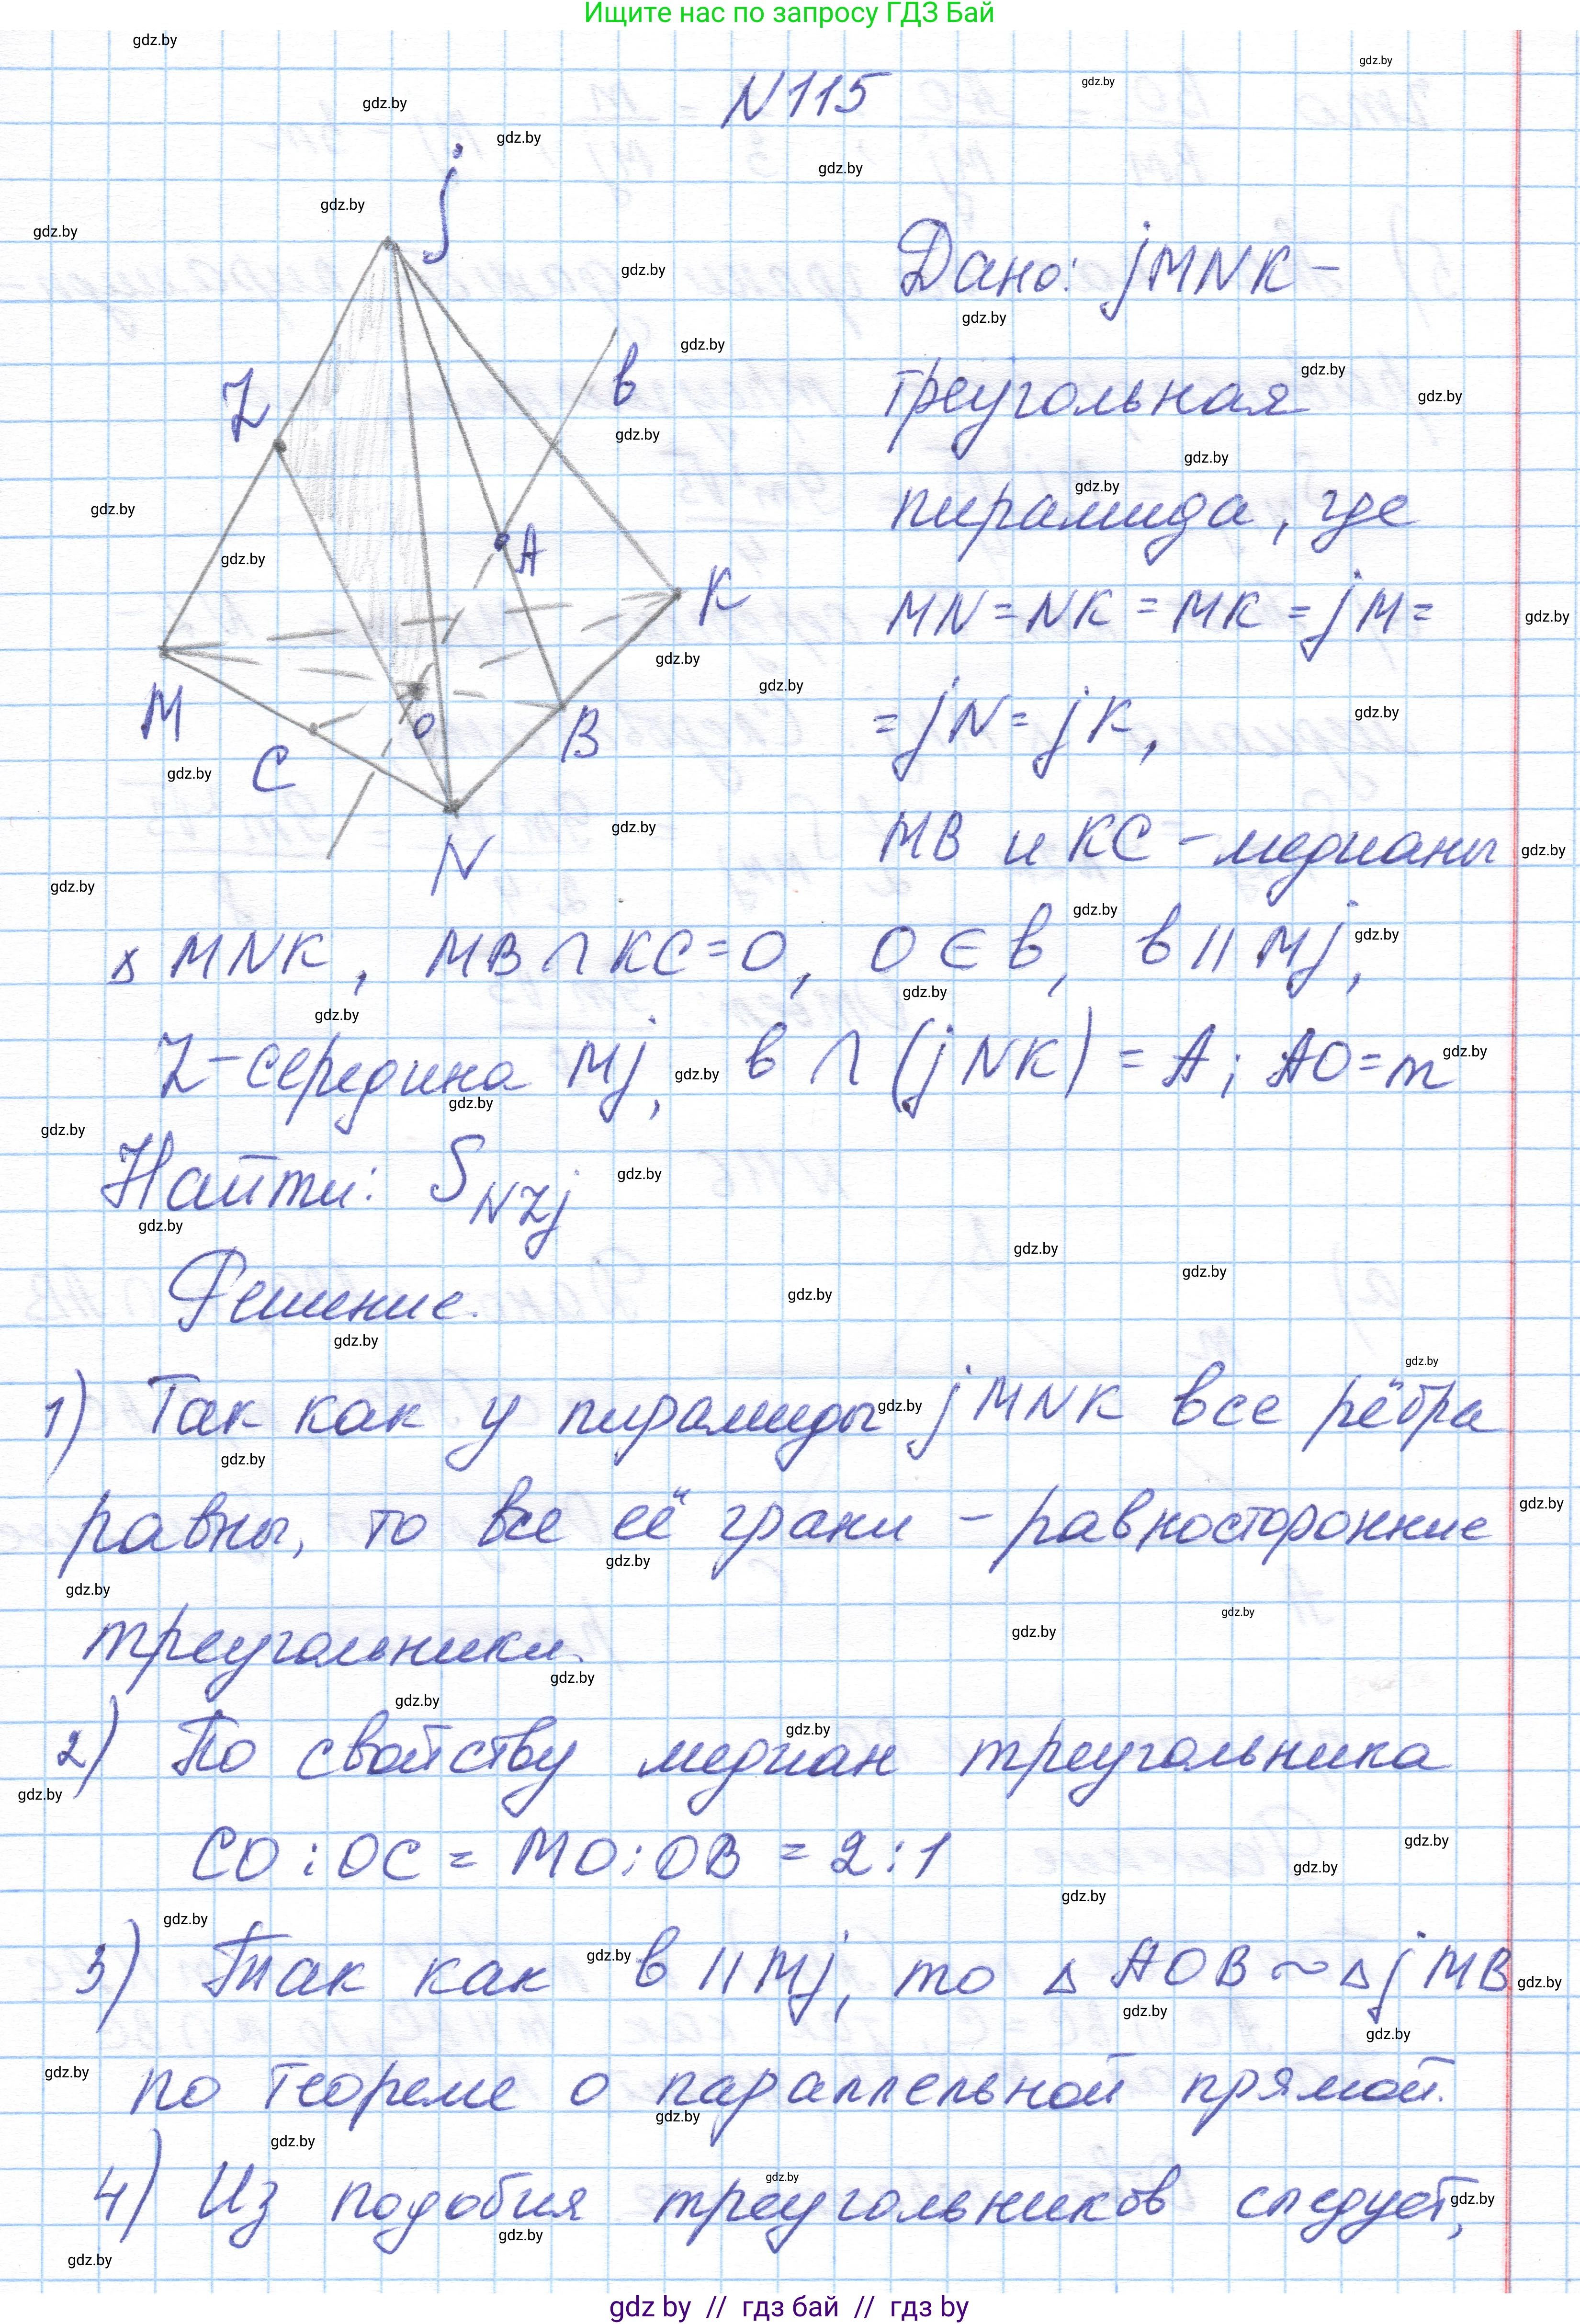 Ищите нас по запросу ГДЗ Бай
N115
j
Z
в
A
K
M
C
O
B
N
Дано: jMNK –
треугольная
пирамида, где
MN = NK = MK = jM =
= jN = jK,
MB и KC – медианы
△ MNK, MB ∩ KC = O, O ∈ в, в || Mj,
Z – середина Mj, в ∩ (jNK) = A; AO = m
Найти: S NZj
Решение.
1) Так как у пирамиды jMNK все рёбра
равны, то все её грани – равносторонние
треугольники.
2) По свойству медиан треугольника
CO : OC = MO : OB = 2 : 1
3) Так как в || Mj, то △ AOB ~ △ jMB
по теореме о параллельной прямой.
4) Из подобия треугольников следует,
gdz.by
gdz by // гдз бай // гдз by